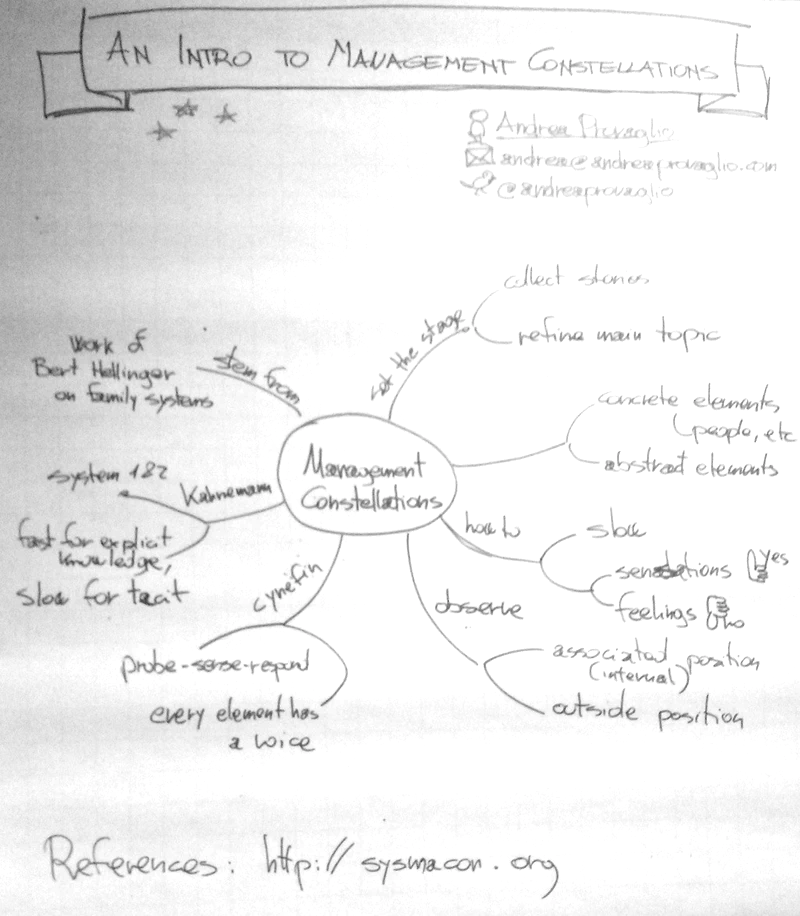 AN INTRO TO MANAGEMENT CONSTELLATIONS
Andrea Provaglio
andrea@andreaprovaglio.com
@andreaprovaglio
Management
Constellations
stem from
work of
Bert Hellinger
on family systems
set the stage
collect stories
refine main topic
concrete elements
people, etc
abstract elements
how to
slow
sensations
yes
feelings
no
observe
associated position
(internal)
outside position
cynefin
probe-sense-respond
every element has
a voice
Kahnemann
system 1&2
fast for explicit
knowledge,
slow for tacit
References: http://sysmacon.org